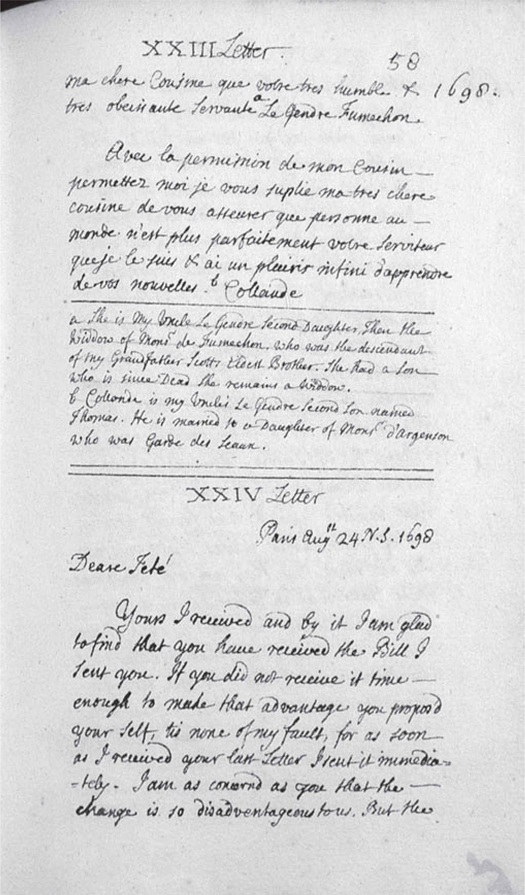 XXIII Letter.
58
ma chere Cousine que votre tres humble & 1698.
tres obeissante Servante a Le Gendre Fumechon.
Avec la permission de mon Cousin —
permettez moi je vous suplie ma tres chere
cousine de vous asseurer que personne au —
monde n'est plus parfaitement votre Serviteur
que je le suis & ai un plaisir infini d'apprendre
de vos nouvelles. b Collande
a She is My Unkle Le Gendre Second Daughter, Then the
Widdow of Monsr de Fumechon, who was the descendant
of my Grandfather Scotts Eldest Brother. She had a Son
who is since Dead She remains a Widdow.
b Collande is my Unkles Le Gendre Second Son named
Thomas. He is married to a Daughter of Monsr d'Argenson
who was Garde des Seaux.
XXIV Letter
Paris Augst 24 N.S. 1698
Deare Teté
Yours I received and by it I am glad
to find that you have received the Bill I
sent you. If you did not receive it time —
enough to make that advantage you propos'd
your self, tis none of my fault, for as soon
as I received your last Letter I sent it immedia=
=tely. I am as concernd as you that the —
change is so disadvantageous to us. But the